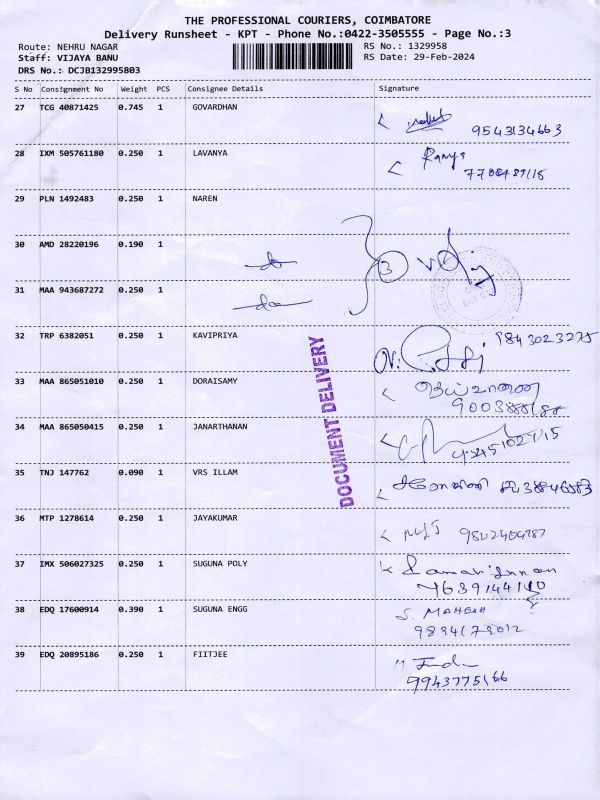 THE PROFESSIONAL COURIERS, COIMBATORE
Delivery Runsheet - KPT - Phone No.:0422-3505555 - Page No.:3
Route: NEHRU NAGAR RS No.: 1329958
Staff: VIJAYA BANU RS Date: 29-Feb-2024
DRS No.: DCJB132995803
S No Consignment No Weight PCS Consignee Details Signature
27 TCG 40871425 0.745 1 GOVARDHAN
9543134663
28 IXM 505761180 0.250 1 LAVANYA Ramya
29 PLN 1492483 0.250 1 NAREN
30 AMD 28220196 0.190 1
3
31 MAA 943687272 0.250 1
32 TRP 6382051 0.250 1 KAVIPRIYA 9843023275
33 MAA 865051010 0.250 1 DORAISAMY
34 MAA 865050415 0.250 1 JANARTHANAN
35 TNJ 147762 0.090 1 VRS ILLAM
36 MTP 1278614 0.250 1 JAYAKUMAR
37 IMX 506027325 0.250 1 SUGUNA POLY
38 EDQ 17600914 0.390 1 SUGUNA ENGG S. MAHESH
39 EDQ 20895186 0.250 1 FIITJEE
9943775166
DOCUMENT DELIVERY